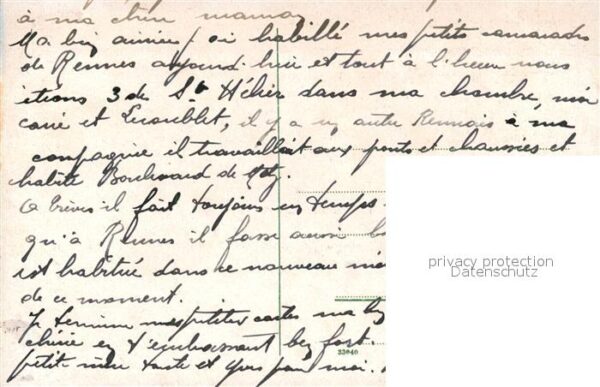 à ma chère maman
Ma bien aimée j'ai habillé mes petits camarades
de Rennes aujourd'hui et tout à l'heure nous
étions 3 de St Hélier dans ma chambre, moi
et, il y a un autre Rennais à ma
compagnie il travaillait aux ponts et chaussées et
habite Boulevard de Metz.
A Trèves il fait toujours un temps
qu'à Rennes il fasse aussi
est habitué dans ce nouveau
de ce moment.
Je termine mes petites cartes ma
chérie en t'embrassant bien fort.
petite mère toute et pour moi.
privacy protection
Datenschutz
33040